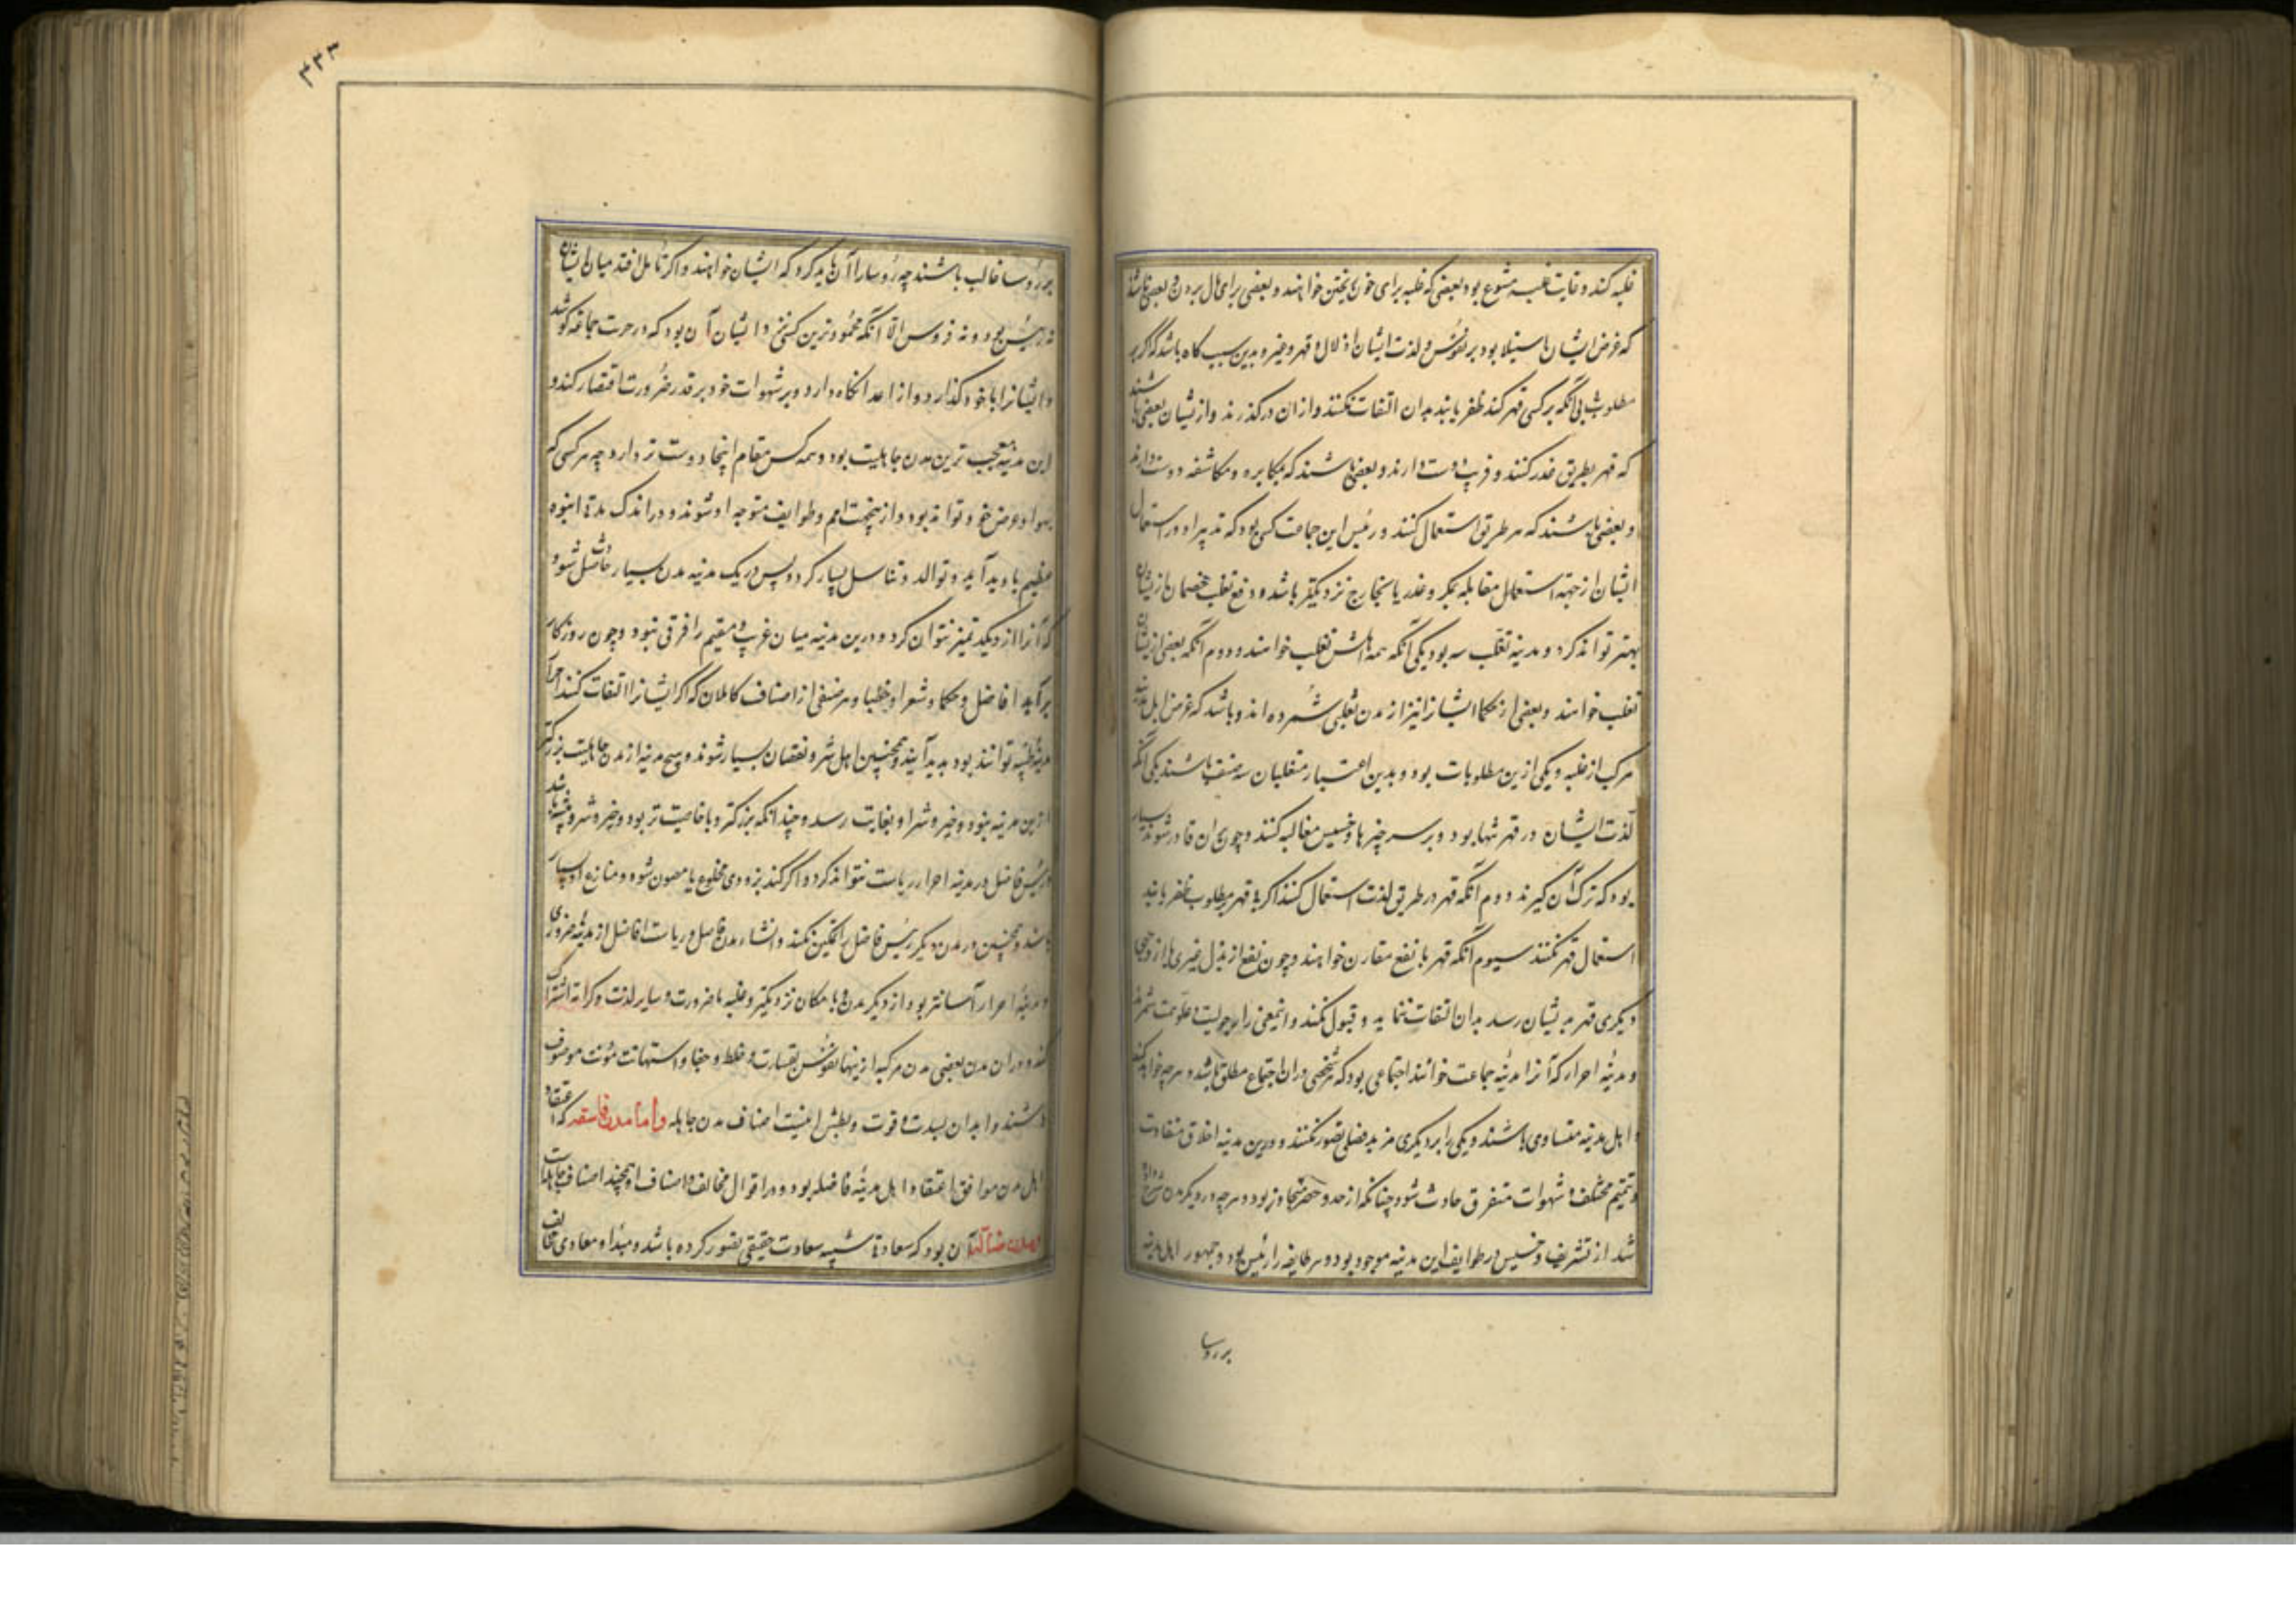 غلبه کند و غایت غلبه متنوع بود بعضی که غلبه برای خون ریختن خواهند و بعضی برای مال بردن و بعضی باشند
که غرض ایشان استیلا بود بر نفوس و لذت ایشان اذلال و قهر و بدین سبب گاه باشد که اگر بر
مطلوب بی آنکه بر کسی قهر کنند ظفر یابند بدان التفات نکنند و ازان درگذرند و ازیشان بعضی باشند
که قهر بطریق غدر کنند و فریب دوست دارند و بعضی باشند که مکابره و مکاشفه دوست دارند
و بعضی باشند که هر طریق استعمال کنند و رئیس این جماعت کسی بود که تدبیر او در استعمال
ایشان از جهة استعمال مقابله بمکر و غدر یا نزدیکتر باشد و دفع تغلب خصمان ازیشان
بهتر تواند کرد و مدینه تغلب سه بود یکی آنکه همه اهلش تغلب خواهند و دوم آنکه بعضی ازیشان
تغلب خواهند و بعضی از حکما ایشانرا نیز از مدن تغلبی شمرده اند و باشد که غرض اهل مدینه
مرکب از غلبه و یکی ازین مطلوبات بود و بدین اعتبار متغلبان سه صنف باشند یکی آنکه
لذت ایشان در قهر تنها بود و بر سر چیزها خسیس مغالبه کنند و چون بران قادر شوند بسیار
بود که ترک آن گیرند دوم آنکه قهر در طریق لذت استعمال کنند اگر بی قهر بمطلوب ظفر یابند
استعمال قهر نکنند سیوم آنکه قهر با نفع مقارن خواهند و چون نفع از بذل غیری یا از وجهی
دیگری قهر بدیشان رسد بدان التفات ننمایند و قبول نکنند
و مدینه احرار که آنرا مدینه جماعت خوانند اجتماعی بود که هر شخصی دران اجتماع مطلق باشد و هرچه خواهد کند
و اهل مدینه متساوی باشند و یکی را بر دیگری مزید فضلی تصور نکنند و درین مدینه اخلاق متفاوت
و همم مختلف و شهوات متفرق حادث شود چنانکه از حد و حصر متجاوز بود و هرچه در دیگر مدن شرح داده
شد از شریف و خسیس در طوایف این مدینه موجود بود و هر طایفه را رئیسی بود و جمهور اهل مدینه
بر رؤسا
۳۳۳
بر رؤسا غالب باشند چه رؤسا را آن باید کرد که ایشان خواهند و اگر تامل افتد میان ایشان
نه رئیس بود و نه مرؤس الا آنکه محمودترین کسی نزد ایشان آن بود که در حریت جماعت کوشد
و ایشانرا با خود گذارد و از اعدا نگاه دارد و بر شهوات خود بر قدر ضرورت اقتصار کند و
این مدینه معجب ترین مدن جاهلیت بود و همه کس مقام اینجا دوست تر دارد چه هر کسی که
بهوا و غرض خود تواند بود و ازینجهت امم و طوایف متوجه او شوند و در اندک مدة انبوه
عظیم با دید آید و توالد و تناسل بسیار گردد پس در یک مدینه مدن بسیار حاصل شود
که آنرا از یکدیگر تمیز نتوان کرد و درین مدینه میان غریب و مقیم فرقی نبود و چون روزگار
برآید افاضل و حکما و شعرا و خطبا و هر صنفی از اصناف کاملان که اگر ایشانرا التقاط کنند اجزا
مدینه فاضله توانند بود پدید آیند و همچنین اهل شر و نقصان بسیار شوند و هیچ مدینه از مدن جاهلیت بزرگتر
ازین مدینه نبود و خیر و شر او بغایت رسد و چندانکه بزرگتر و با خاصیت تر بود خیر و شرش بیشتر باشد
و رئیس فاضل در مدینه احرار ریاست نتواند کرد و اگر کند بزودی مخلوع یا و منازع او بسیار
باشد و همچنین در مدن دیگر رئیس فاضل را تمکین نکنند و انشاء مدن فاضل و ریاست افاضل از مدینه ضروری
و مدینه احرار آسانتر بود از دیگر مدن و بامکان نزدیکتر و غلبه با ضرورت و یسار و لذت و کرامت اشتراک
کند و دران مدن بعضی مدن مرکبه ازینها نفوس بقساوت و غلظ و جفا و استهانت موت موصوف
باشند و ابدان بشدت و قوت و بطش اصناف مدن جاهله و اما مدن فاسقه که اعتقاد
اهل مدن موافق اعتقاد اهل مدینه فاضله بود و در اقوال مخالف و اصناف او همچند اصناف جاهلیات
و مدن ضاله آن بود که سعادة شبیه سعادت حقیقی تصور کرده باشند و مبدا و معادی مخالف